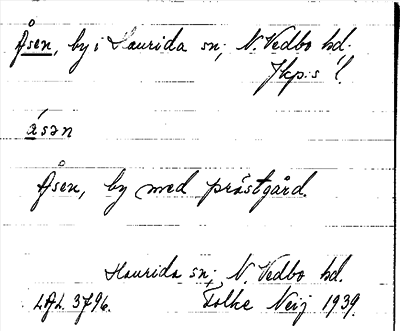 Åsen, by i Haurida sn, N. Vedbo hd.
Jkp:s l.
åsən
Åsen, by med prästgård.
Haurida sn, N. Vedbo hd.
3796. Folke 1939.